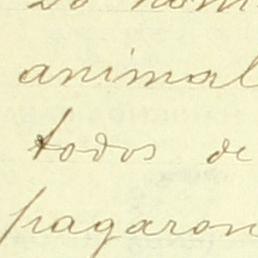 animal
todos de
pagaron